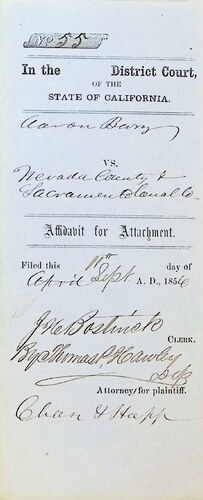 No. 55
In the District Court,
OF THE
STATE OF CALIFORNIA.
Aaron Bary
VS.
Nevada County &
Sacramento Canal Co
Affidavit for Attachment.
Filed this 11th day of
April Sept A. D., 1856
J H Bostwick
CLERK.
By Thomas P. Hawley
Dep
Attorney for plaintiff.
Chan & Happ